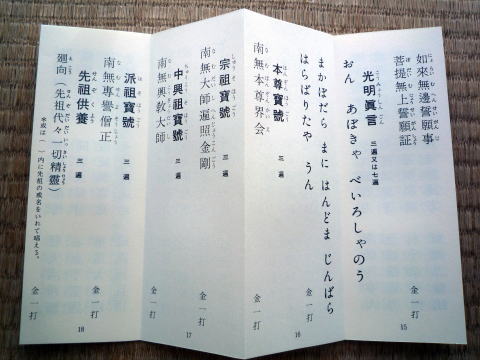 如來無邊誓願事
菩提無上誓願証 金一打
光明眞言 三遍又は七遍
おん あぼきゃ べいろしゃのう
15
まかぼだら まに はんどま じんばら
はらばりたや うん 金一打
本尊寳號 三遍
南無本尊界会 金一打
16
宗祖寳號 三遍
南無大師遍照金剛 金一打
中興祖寳號 三遍
南無興教大師 金一打
17
派祖寳號 三遍
南無専譽僧正 金一打
先祖供養 三遍
廻向（先祖代々一切精靈） 金一打
（ ）内に先祖の戒名をいれて唱える。
18